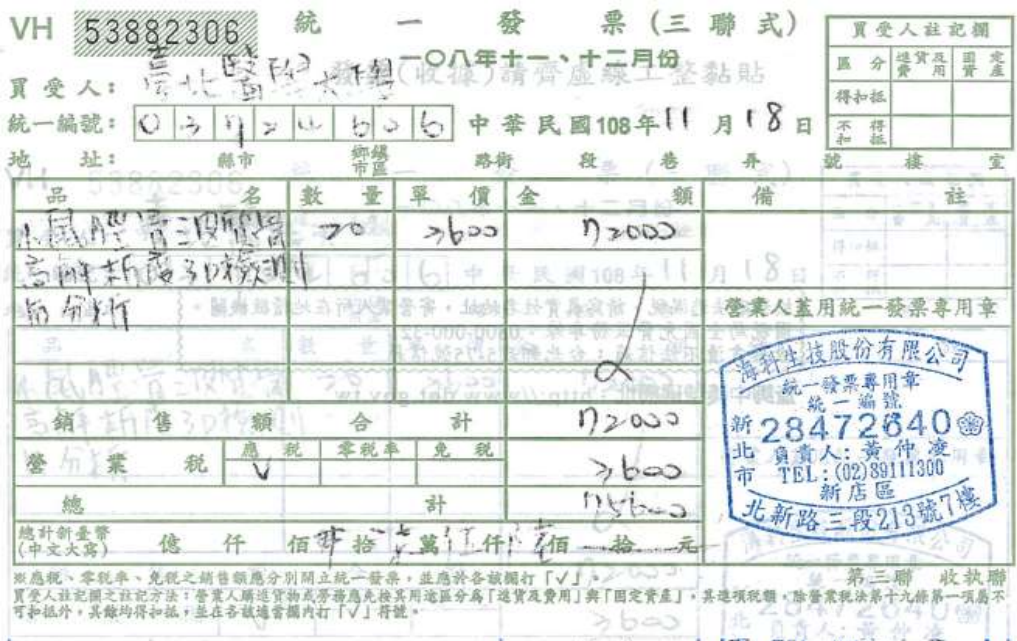 VH 53882306 統一發票(三聯式)
一〇八年十一、十二月份
買受人: 臺北醫院大學
發票(收據)請齊虛線工整黏貼
統一編號: 03724606 中華民國108年11月18日
地址: 縣市 鄉鎮市區 路街 段 巷 弄 號 樓 室
買受人註記欄
區分 進貨及費用 固定資產
得扣抵
不得扣抵
品名 數量 單價 金額 備註
小鼠脛骨三段骨骼 20 3600 72000
高解析度3D檢測
與分析
營業人蓋用統一發票專用章
銷售額合計 72000
營業稅 應稅 V 零稅率 免稅 3600
總計 75600
總計新臺幣(中文大寫) 億 仟 佰 拾 萬 仟 佰 拾 元
海科生技股份有限公司
統一發票專用章
統一編號
28472640
負責人: 黃仲凌
TEL:(02)89111300
新北市新店區
北新路三段213號7樓
第三聯 收執聯
※應稅、零稅率、免稅之銷售額應分別開立統一發票,並應於各該欄打「√」。
買受人註記欄之註記方法:營業人購進貨物或勞務應先按其用途區分為「進貨及費用」與「固定資產」,其進項稅額,除營業稅法第十九條第一項屬不
可扣抵外,其餘均得扣抵,並在各該適當欄內打「√」符號。